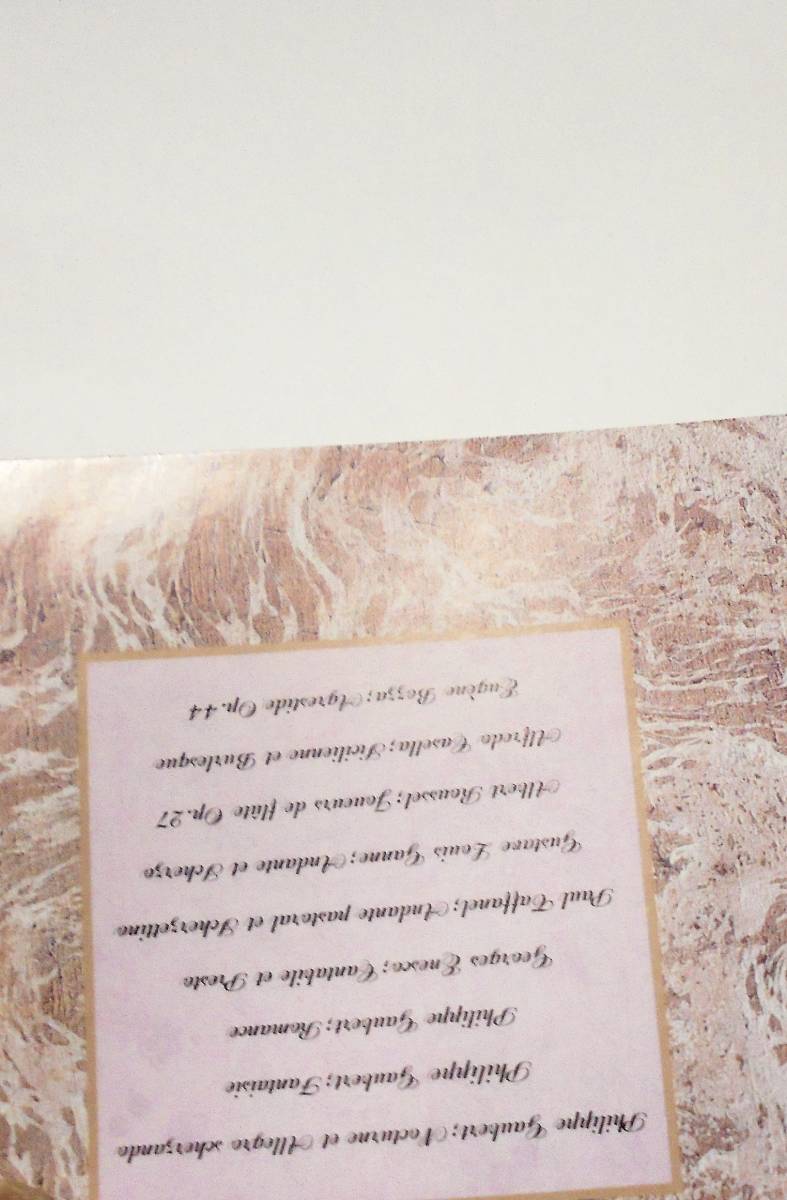 Philippe Gaubert; Nocturne et Allegro scherzando
Philippe Gaubert; Fantaisie
Philippe Gaubert; Romance
Georges Enesco; Cantabile et Presto
Paul Taffanel; Andante pastoral et Scherzettino
Gustave Louis Ganne; Andante et Scherzo
Albert Roussel; Joueurs de flûte Op.27
Alfredo Casella; Sicilienne et Burlesque
Eugène Bozza; Agrestide Op.44